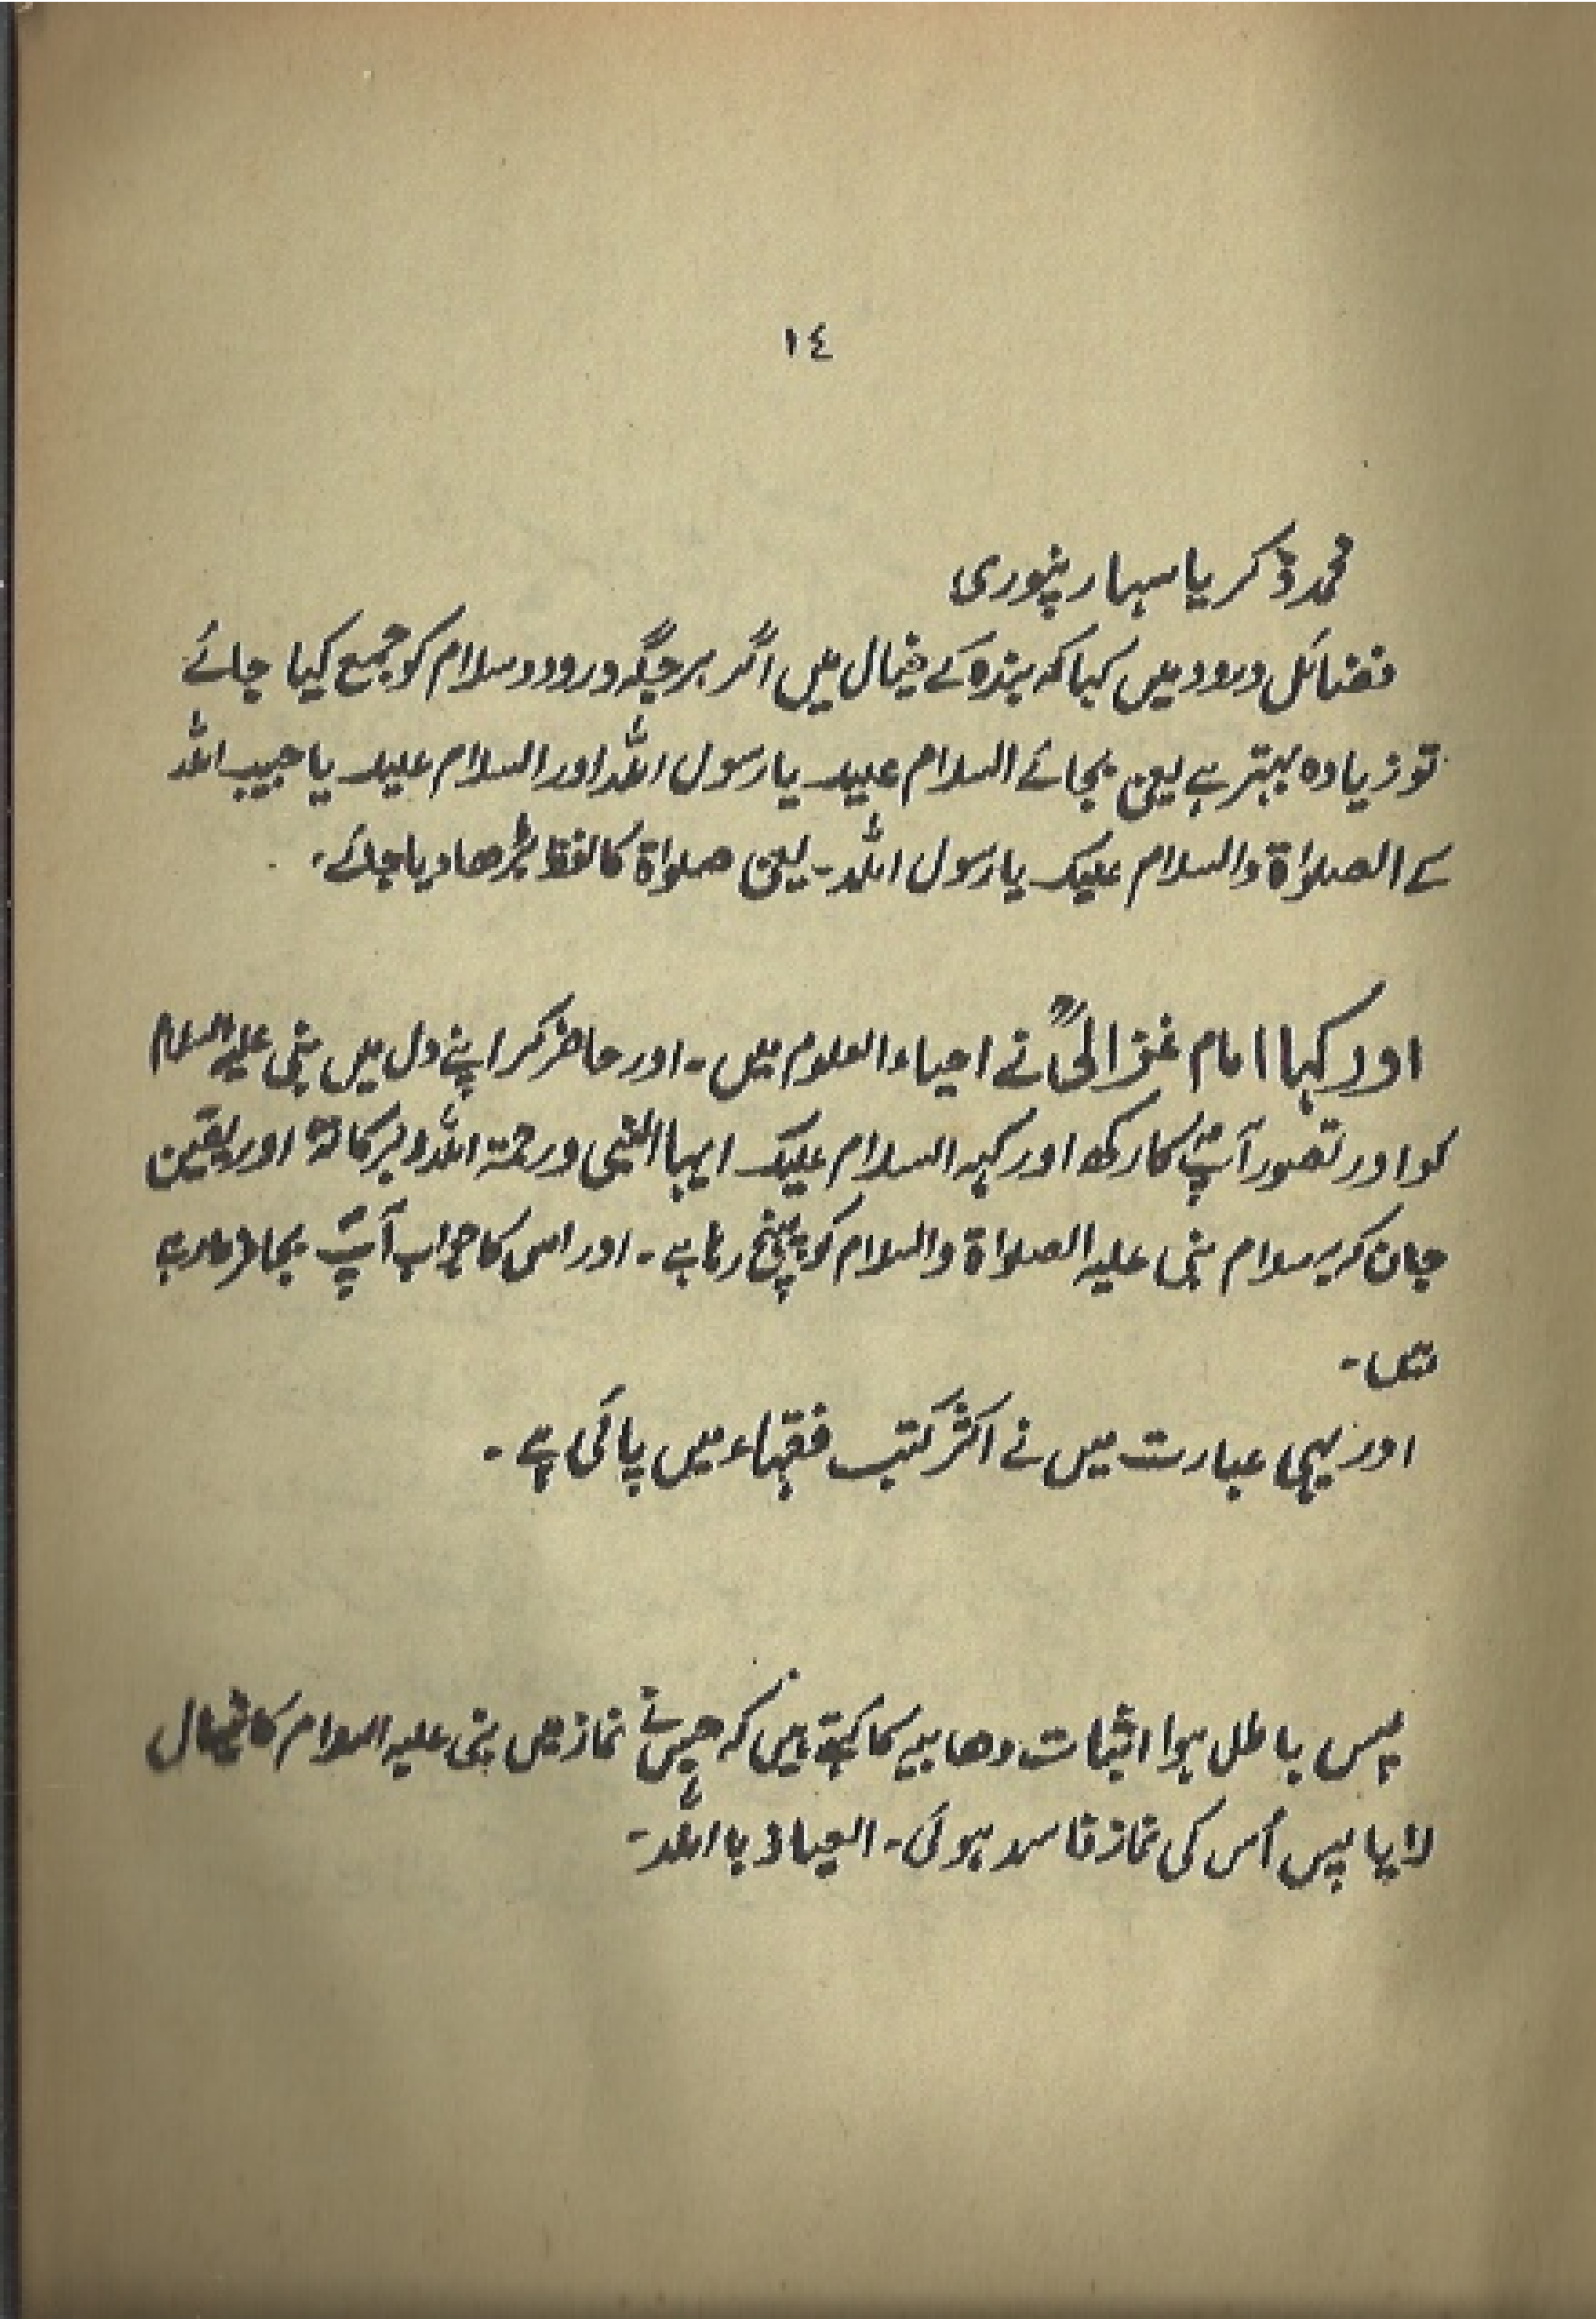 ١٤
محمد ذکریا سہارنپوری
فضائل درود میں کہا کہ بندہ کے خیال میں اگر ہر جگہ درود و سلام کو جمع کیا جائے
تو زیادہ بہتر ہے یعنی بجائے السلام علیک یا رسول اللہ اور السلام علیک یا حبیب اللہ
کے الصلواۃ والسلام علیک یا رسول اللہ ۔ یعنی صلواۃ کا لفظ بڑھا دیا جائے ۔
اور کہا امام غزالیؒ نے احیاء العلوم میں ۔ اور حاضر کر اپنے دل میں نبی علیہ السلام
کو اور تصور آپؐ کا رکھ اور کہہ السلام علیک ایہا النبی ورحمۃ اللہ و برکاتہ اور یقین
جان کر یہ سلام نبی علیہ الصلواۃ والسلام کو پہنچ رہا ہے ۔ اور اس کا جواب آپؐ بھی
ہیں ۔
اور یہی عبارت میں نے اکثر کتب فقہاء میں پائی ہے ۔
پس باطل ہوا اثبات وھابیہ کا کہتے ہیں کہ جس نے نماز میں نبی علیہ السلام کا خیال
لایا پس اُس کی نماز فاسد ہوئی ۔ العیاذ با اللہ ۔